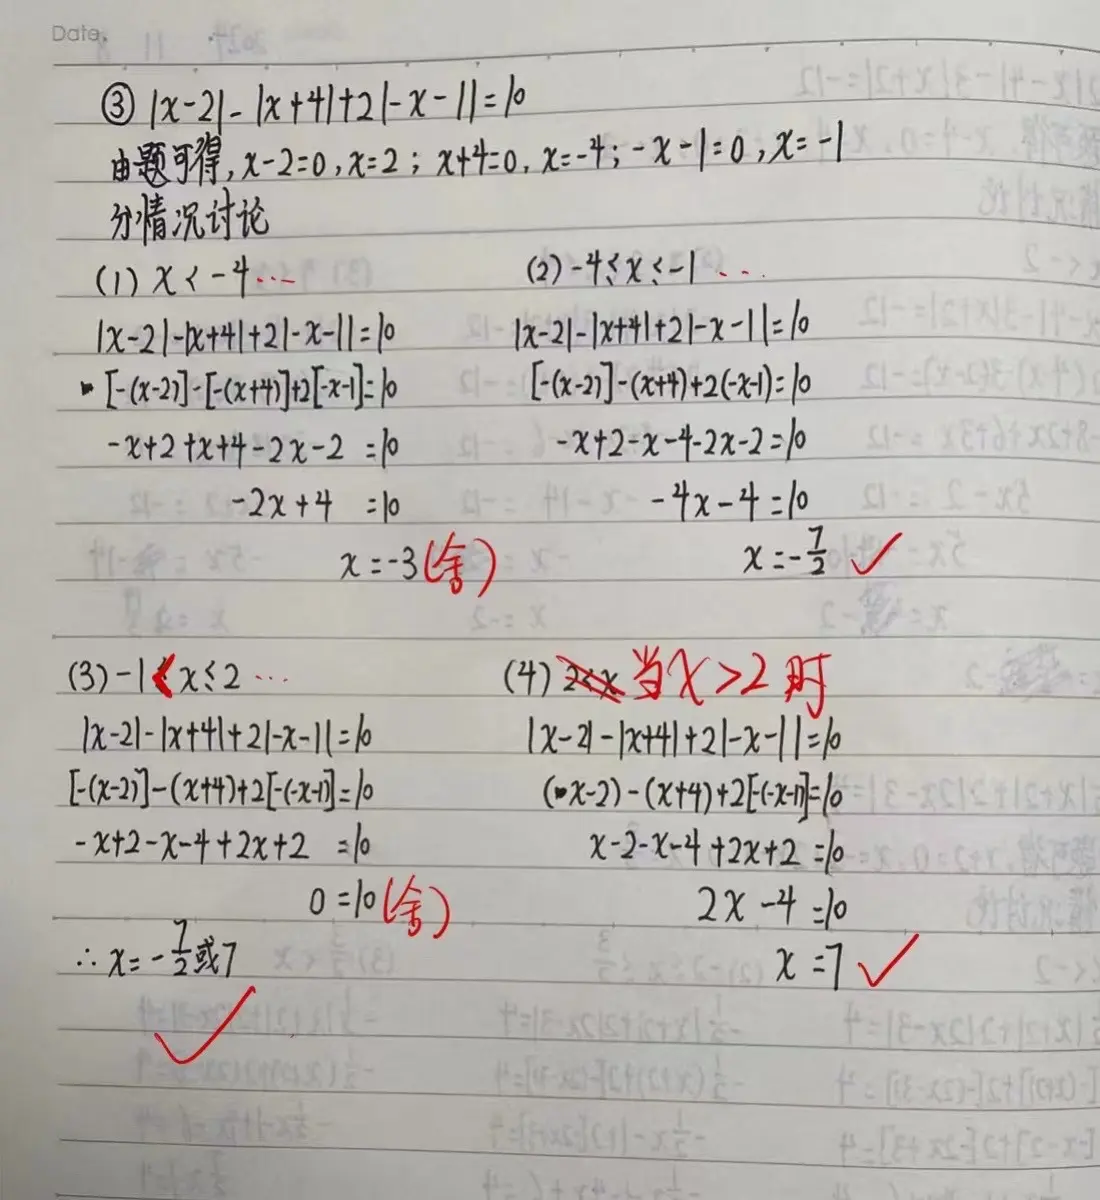 Date.
③ |x-2|-|x+4|+2|-x-1|=10
由题可得,x-2=0,x=2;x+4=0,x=-4;-x-1=0,x=-1
分情况讨论
(1) x<-4...
|x-2|-|x+4|+2|-x-1|=10
[-(x-2)]-[-(x+4)]+2[-x-1]=10
-x+2+x+4-2x-2=10
-2x+4=10
x=-3(舍)
(2)-4≤x≤-1...
|x-2|-|x+4|+2|-x-1|=10
[-(x-2)]-(x+4)+2(-x-1)=10
-x+2-x-4-2x-2=10
-4x-4=10
x=-7/2 ✓
(3)-1<x≤2...
|x-2|-|x+4|+2|-x-1|=10
[-(x-2)]-(x+4)+2[-(-x-1)]=10
-x+2-x-4+2x+2=10
0=10(舍)
(4) 2<x 当x>2时
|x-2|-|x+4|+2|-x-1|=10
(x-2)-(x+4)+2[-(-x-1)]=10
x-2-x-4+2x+2=10
2x-4=10
x=7 ✓
∴x=-7/2或7
✓